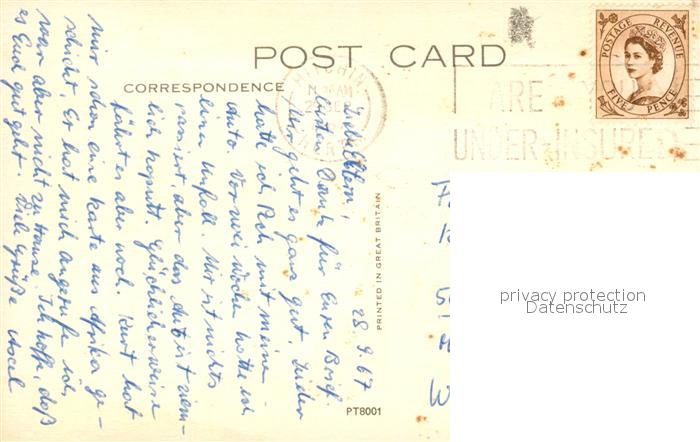 POST CARD
CORRESPONDENCE
POSTAGE REVENUE
FIVE PENCE
HITCHIN
HERTS
ARE
UNDER-INSURED
28.9.67
Liebe Eltern,
vielen Dank für Euren Brief.
Mir geht es ganz gut. Leider
hatte ich Pech mit meinem
Auto. Vor zwei Wochen hatte ich
einen Unfall. Mir ist nichts
passiert, aber das Auto ist ziem-
lich kaputt. Glücklicherweise
fährt es aber noch. Kurt hat
mir schon eine Karte aus Afrika ge-
schickt. Er hat mich angerufen, ich
war aber nicht zu Hause. Ich hoffe, daß
es Euch gut geht. Viele Grüße Axel
PRINTED IN GREAT BRITAIN
PT8001
privacy protection
Datenschutz